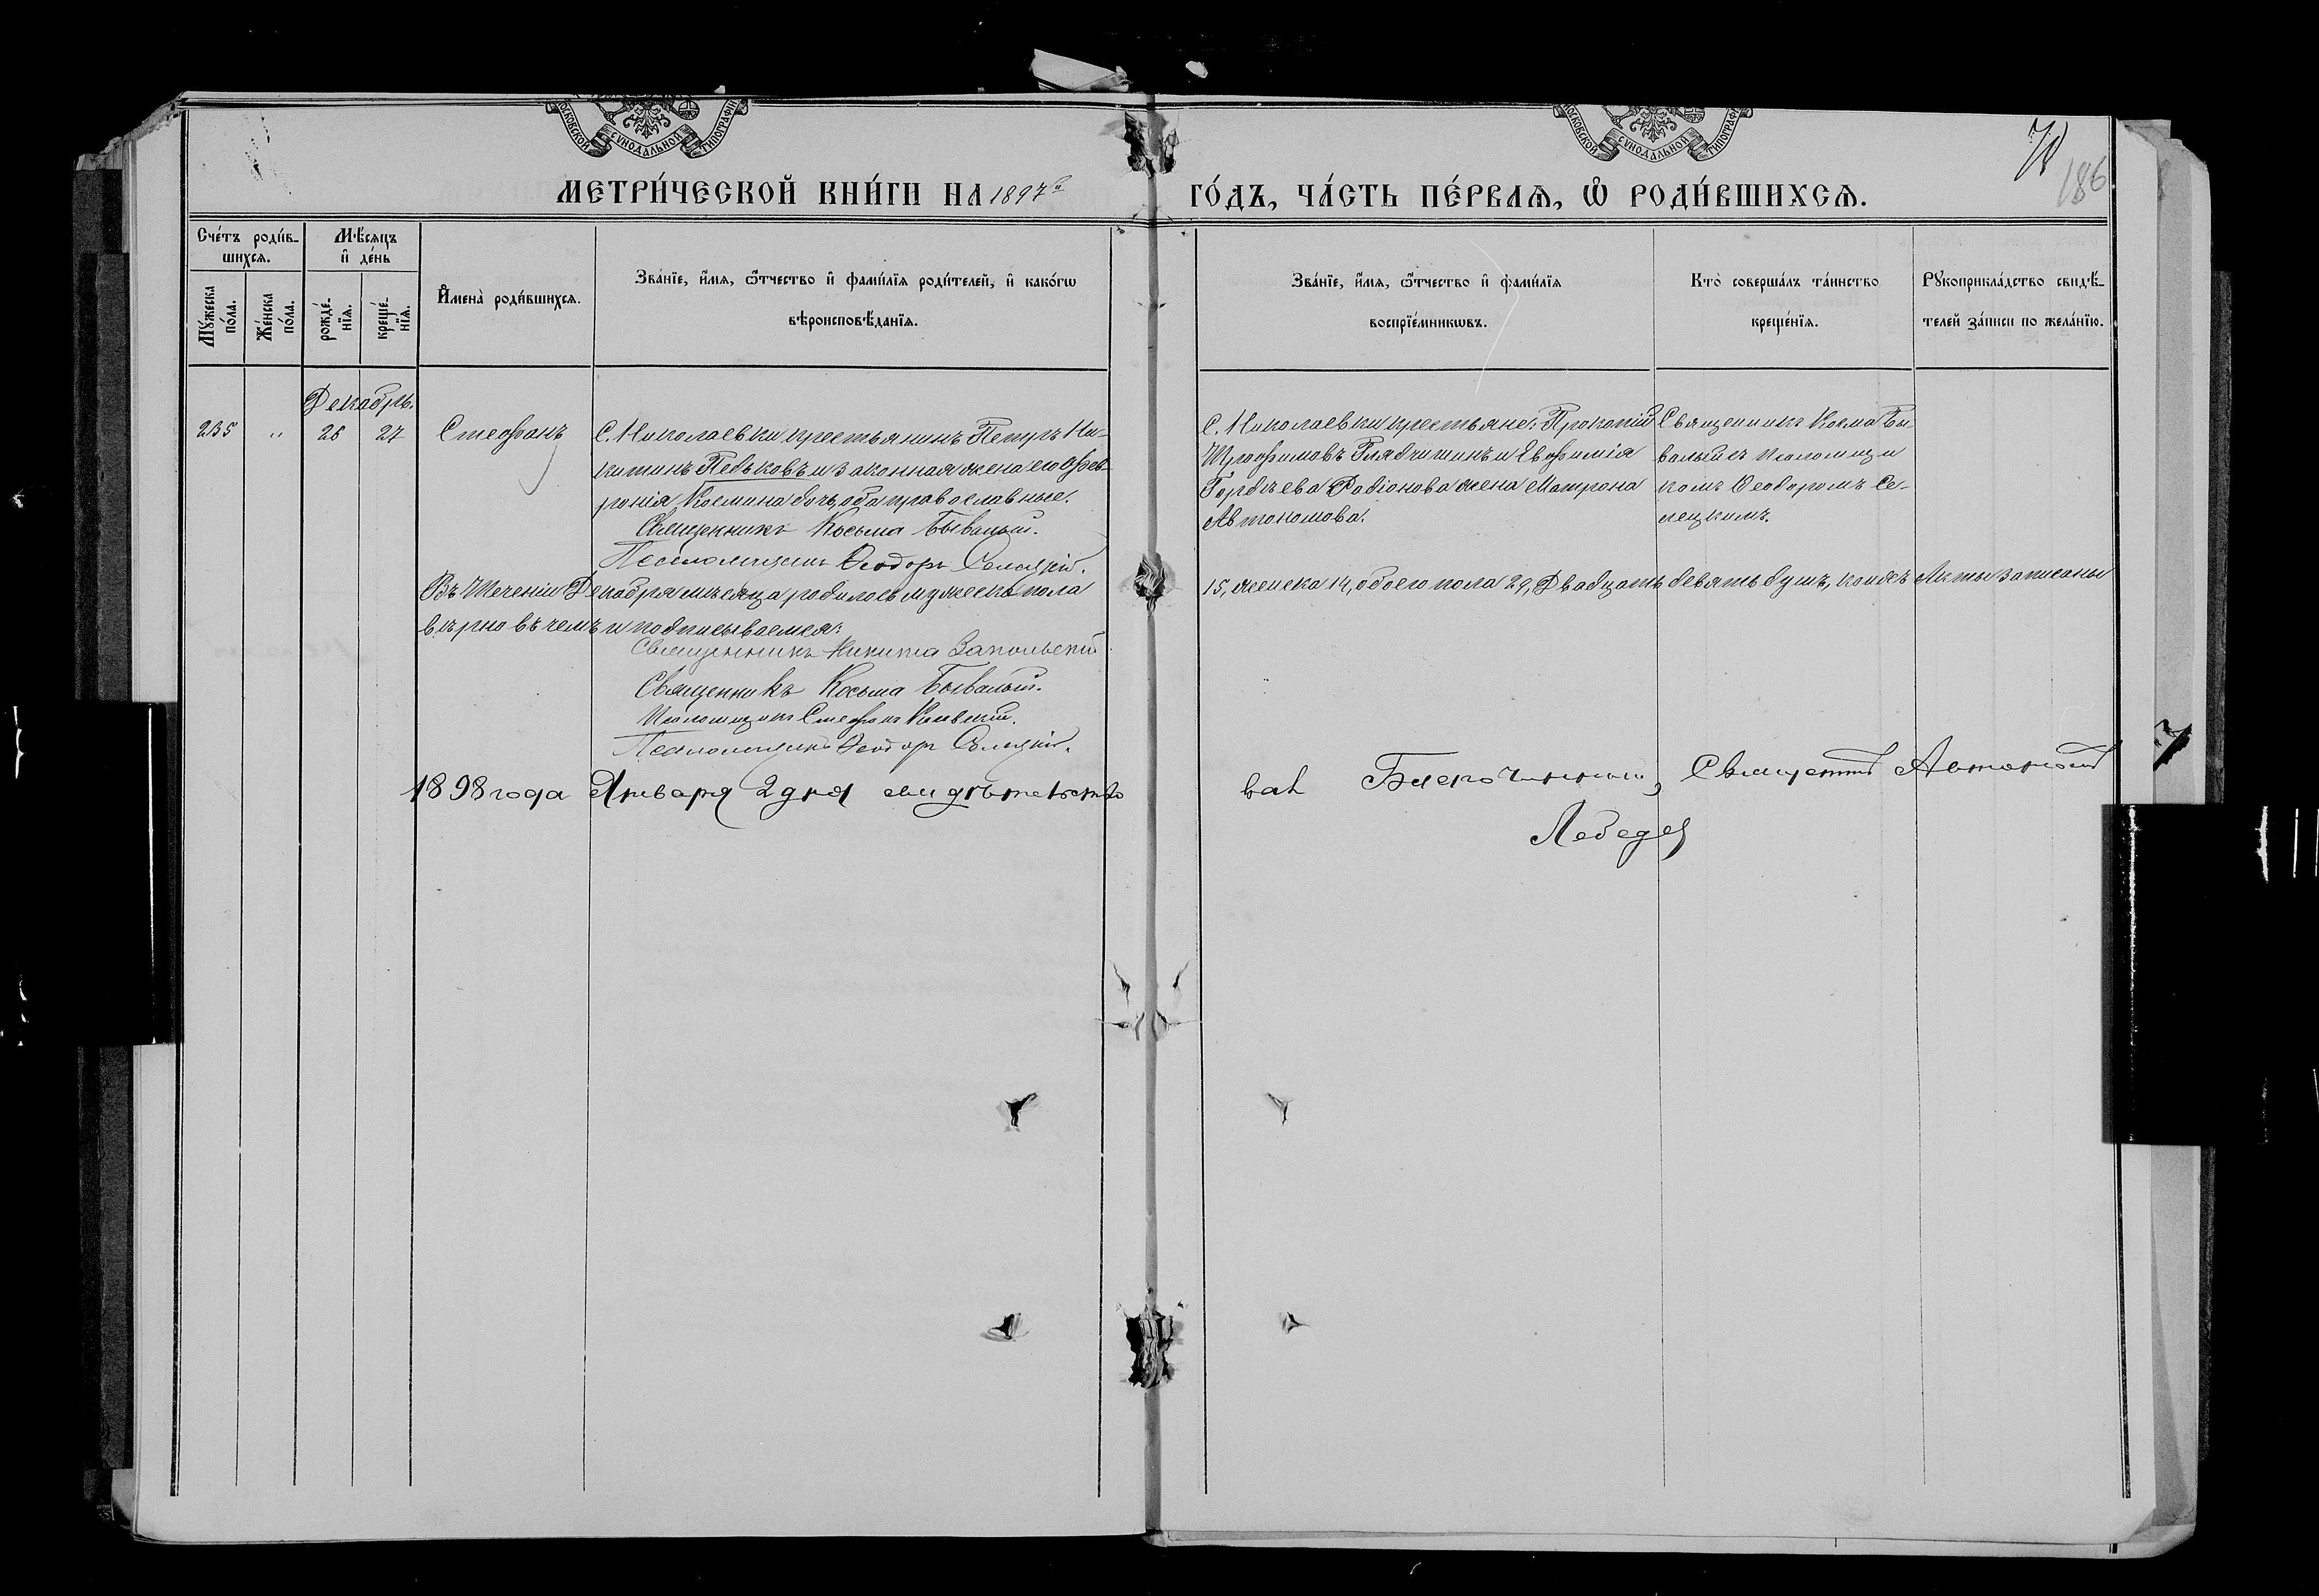 МОСКОВСКОЙ СѴНОДАЛЬНОЙ ТИПОГРАФІИ
МОСКОВСКОЙ СѴНОДАЛЬНОЙ ТИПОГРАФІИ
186
МЕТРИ́ЧЕСКОЙ КНИ́ГИ НА 1897й ГО́ДЪ, ЧА́СТЬ ПЕ́РВАѦ, Ѡ҆ РОДИ́ВШИХСѦ.
Сче́тъ роди́в-
шихсѧ.
Мꙋ́жеска
по́ла.
Же́нска
по́ла.
Мѣ́сѧцъ
и҆ де́нь
рожде́-
нїѧ.
креще́-
нїѧ.
И҆мена̀ роди́вшихсѧ.
Зва́нїе, и҆́мѧ, ѻ҆́тчество и҆ фами́лїѧ роди́телей, и҆ како́гѡ
вѣроисповѣ́данїѧ.
Зва́нїе, и҆́мѧ, ѻ҆́тчество и҆ фами́лїѧ
воспрїе́мникѡвъ.
Кто̀ соверша́лъ та́инство
креще́нїѧ.
Рꙋкоприкла́дство свидѣ́-
телей за́писи по жела́нїю.
Декабрь.
235 " 26 27 Стефанъ
С. Николаевки крестьянинъ Петръ Ни-
китинъ Педьковъ и законная жена его Фев-
ронія Космина дочь, оба православные.
Священникъ Косьма Бывалый.
Псаломщикъ Ѳеодоръ Селецкій.
С. Николаевки крестьяне: Прокопій
Трофимовъ Глядчишинъ и Евфимія
Гордѣева Родіонова жена Матрона
Автономова.
Священникъ Косма Бы-
валый съ псаломщи
комъ Ѳеодоромъ Се-
лецкимъ.
Въ теченіи Декабря мѣсяца родилось мужеска пола 15, женска 14, обоего пола 29, Двадцать девять душъ, коихъ Акты записаны
вѣрно въ чемъ и подписываемся:
Священникъ Никита Запольскій
Священникъ Косьма Бывалый.
Псаломщикъ Стефанъ
Псаломщикъ Ѳеодоръ Селецкій.
1898 года Января 2 дня свидѣтельство
валъ Благочинный, Священникъ
Лебедев